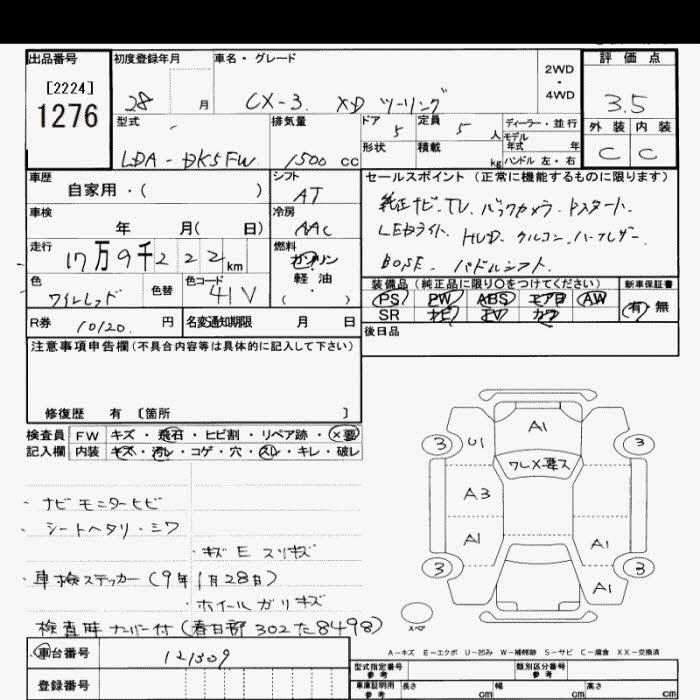 出品番号
[2224]
1276
初度登録年月
28 月
車名・グレード
CX-3 XD ツーリング
2WD
・
4WD
評価点
3.5
型式
LDA-DK5FW
排気量
1500 cc
ドア
5
定員
5 人
形状
積載
kg
ディーラー・並行
モデル
年式 年
ハンドル 左・右
外装 内装
C C
車歴
自家用・( )
シフト
AT
セールスポイント (正常に機能するものに限ります)
純正ナビ・TV. バックカメラ. Pスタート.
LEDライト. HUD. クルコン. ハーフレザー.
BOSE. パドルシフト.
車検
年 月( 日)
冷房
AAC
走行
17万9千222km
燃料
ガソリン
軽油
( )
色
ワインレッド
色替
色コード
41V
装備品 (純正品に限り○をつけてください)
新車保証書
PS PW ABS エアB AW
SR ナビ TV カワ
有 無
R券 10120. 円
名変通知期限 月 日
後日品
注意事項申告欄 (不具合内容等は具体的に記入して下さい)
修復歴 有 [箇所 ]
検査員
記入欄
FW キズ・飛石・ヒビ割・リペア跡・X要
内装 キズ・汚レ・コゲ・穴・スレ・キレ・破レ
・ナビモニターヒビ
・シートヘタリ・シワ
・キズ E スリキズ
・車検ステッカー(9年1月28日)
・ホイールガリキズ
検査時ナンバー付(春日部302た8498)
A1
3 U1 3
ワレX要ス
A3
A1 A1
3 3
A1
スペア
A-キズ E-エクボ U-凹み W-補修跡 S-サビ C-腐食 XX-交換済
車台番号
121309
登録番号
型式指定番号
参考
類別区分番号
参考
車庫証明用
参考
長さ cm 幅 cm 高さ cm